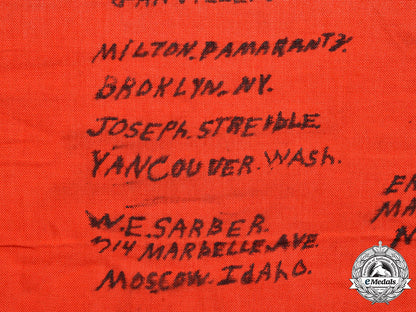 MILTON. PAMARANTZ.
BROKLYN. NY.
JOSEPH. STREIBLE.
VANCOUVER. WASH.
W.E. SARBER.
714 MARBELLE. AVE
MOSCOW. IDAHO.
ER
MA
N
eMedals